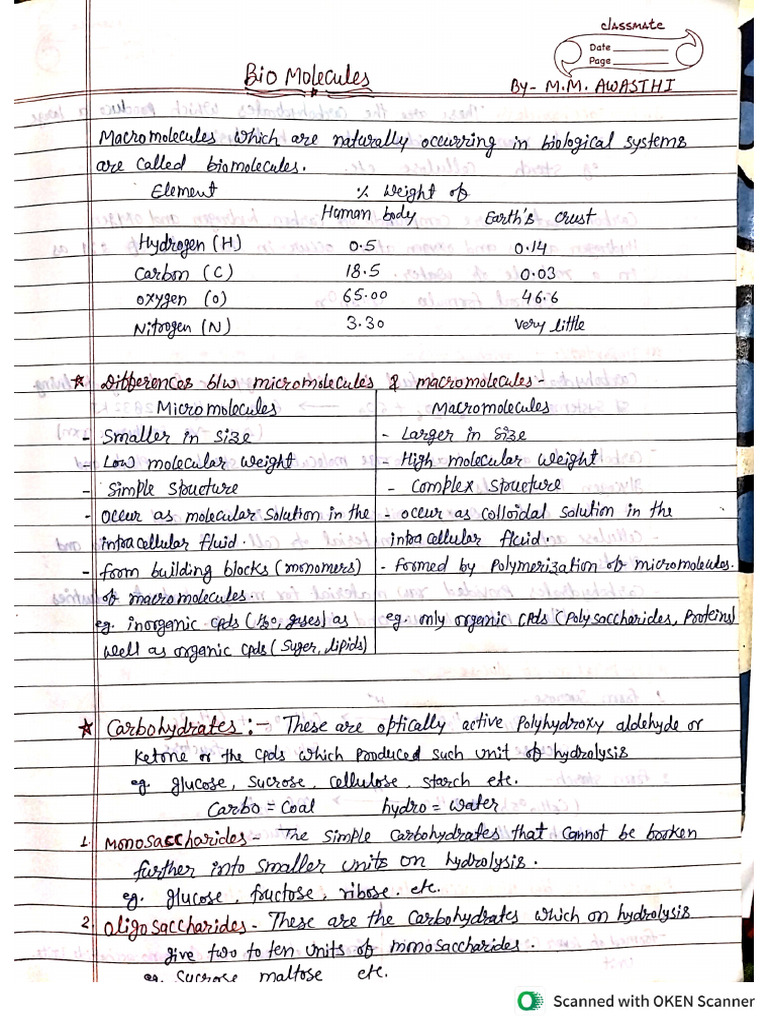 classmate
Date
Page
Bio Molecules
By- M.M. AWASTHI
Macromolecules which are naturally occurring in biological systems
are called biomolecules.
Element % weight of
Human body Earth's crust
Hydrogen (H) 0.5 0.14
Carbon (C) 18.5 0.03
oxygen (O) 65.00 46.6
Nitrogen (N) 3.30 very little
☆ Differences b/w micromolecules & macromolecules-
Micromolecules Macromolecules
- Smaller in size - Larger in size
- Low molecular weight - High molecular weight
- Simple structure - Complex structure
- occur as molecular solution in the - occur as colloidal solution in the
intracellular fluid. intracellular fluid.
- form building blocks (monomers) - formed by polymerization of micromolecules.
of macromolecules.
eg. inorganic cpds (H₂O, gases) as eg. only organic cpds (Polysaccharides, Proteins)
well as organic cpds (Suger, lipids)
☆ Carbohydrates :- These are optically active polyhydroxy aldehyde or
ketone or the cpds which produced such unit of hydrolysis
eg. glucose, sucrose, cellulose, starch etc.
Carbo = Coal hydro = water
1. Monosaccharides - The simple carbohydrates that cannot be broken
further into smaller units on hydrolysis.
eg. glucose, fructose, ribose. etc.
2. Oligosaccharides - These are the Carbohydrates which on hydrolysis
give two to ten units of monosaccharides.
eg. sucrose maltose etc.
Scanned with OKEN Scanner